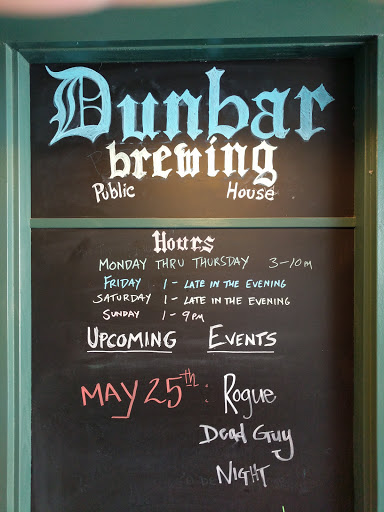 Dunbar
brewing
Public House
Hours
MONDAY THRU THURSDAY 3-10PM
FRIDAY 1- LATE IN THE EVENING
SATURDAY 1- LATE IN THE EVENING
SUNDAY 1-9PM
UPCOMING EVENTS
MAY 25th: Rogue
Dead Guy
NIGHT